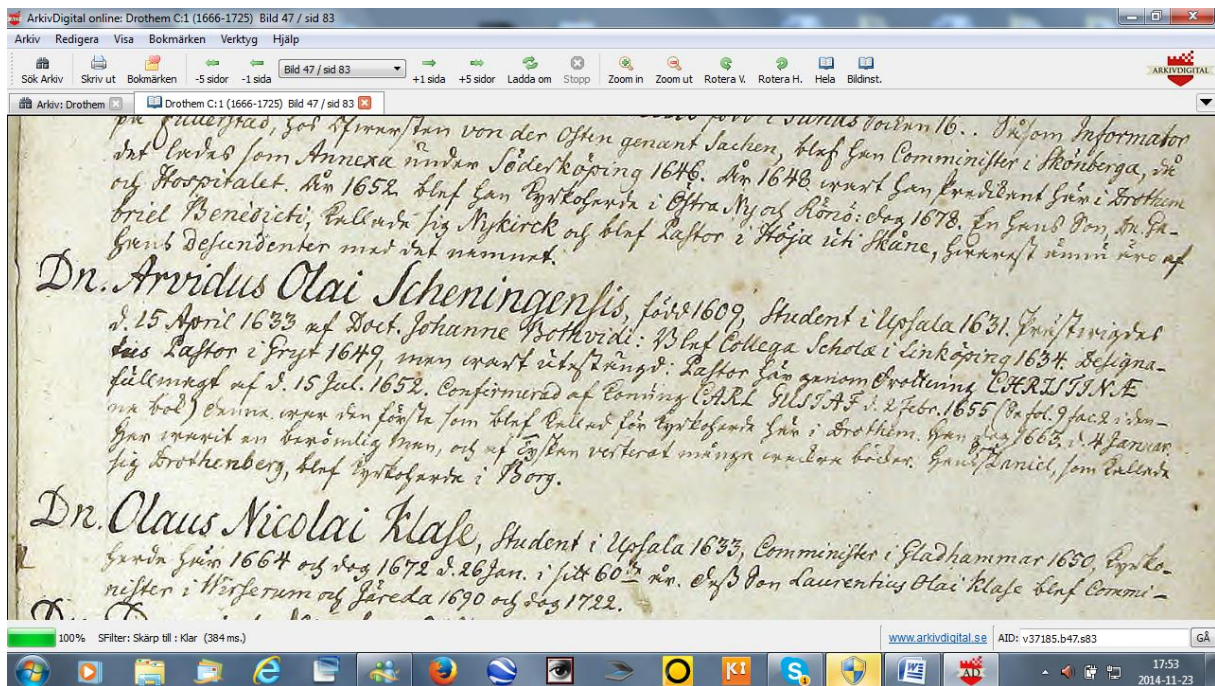 ArkivDigital online: Drothem C:1 (1666-1725) Bild 47 / sid 83
Arkiv Redigera Visa Bokmärken Verktyg Hjälp
Sök Arkiv Skriv ut Bokmärken -5 sidor -1 sida Bild 47 / sid 83 +1 sida +5 sidor Ladda om Stopp Zoom in Zoom ut Rotera V. Rotera H. Hela Bildinst. ARKIVDIGITAL
Arkiv: Drothem Drothem C:1 (1666-1725) Bild 47 / sid 83
på Fullerstad, hos Öfwersten von der Osten genant Sacken, blef han Comminister i Skönberga, då
det lades som Annexa under Söderköping 1646. År 1648 wart han Predikant här i Drothem
och Hospitalet. År 1652 blef han Kyrkoherde i Östra Ny och Rönö: dog 1678. En hans Son, Dn. Ga-
briel Benedicti, kallade sig Nykirck och blef Pastor i Höja uti Skåne, hwarest ännu äro af
hans Descendenter med det namnet.
Dn. Arvidus Olai Scheningensis, född 1609, Student i Upsala 1631. Prästwigdes
d. 15 April 1633 af Doct. Johanne Bothvidi: Blef Collega Scholæ i Linköping 1634. Designa-
tus Pastor i Gryt 1649, men wart utestängd: Pastor här genom Drottning CHRISTINÆ
fullmagt af d. 15 Jul. 1652. Confirmerad af Konung CARL GUSTAF d. 2 Febr. 1655 (Se fol. 9 fac. 2 i den-
na bok) denne war den förste som blef kallad för Kyrkoherde här i Drothem. Han dog 1663, d. 4 Januar.
Har warit en berömlig man, och af Tysken verterat månge wackra böcker. Hans Daniel, som kallade
sig Drothenberg, blef Kyrkoherde i Borg.
Dn. Olaus Nicolai Klase, Student i Upsala 1633, Comminister i Gladhammar 1650, Kyrko-
herde här 1664 och dog 1672 d. 26 Jan. i sitt 60 år. Dess Son Laurentius Olai Klase blef Commi-
nister i Wirserum och Järeda 1690 och dog 1722.
100% SFilter: Skärp till : Klar (384 ms.) www.arkivdigital.se AID: v37185.b47.s83 GÅ
17:53
2014-11-23